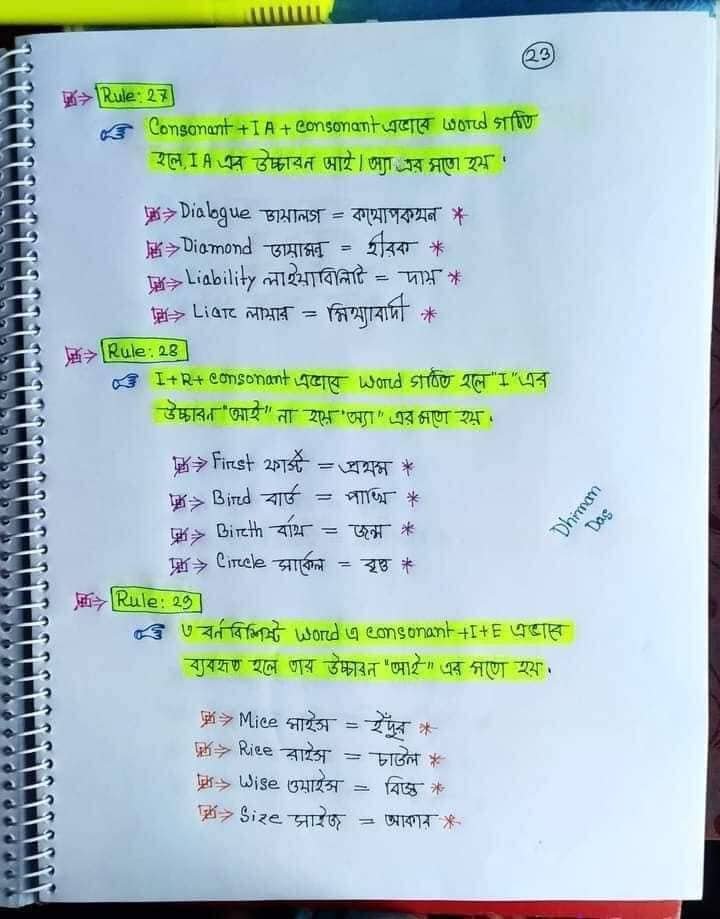 23
Rule: 27
Consonant + IA + Consonant এভাবে word গঠিত
হলে, IA এর উচ্চারন আই/অ্যা এর মতো হয়।
Dialogue ডায়ালগ = কথোপকথন
Diamond ডায়ামন্ড = হীরক
Liability লাইয়াবিলিটি = দায়
Liar লায়ার = মিথ্যাবাদী
Rule: 28
I+R+ Consonant এভাবে word গঠিত হলে "I" এর
উচ্চারন "আই" না হয়ে "অ্যা" এর মতো হয়।
First ফার্স্ট = প্রথম
Bird বার্ড = পাখি
Birth বার্থ = জন্ম
Circle সার্কেল = বৃত্ত
Dhiman
Das
Rule: 29
৩ বর্ন বিশিষ্ট word এ consonant +I+E এভাবে
ব্যবহৃত হলে তার উচ্চারন "আই" এর মতো হয়।
Mice মাইস = ইঁদুর
Rice রাইস = চাউল
Wise ওয়াইস = বিজ্ঞ
Size সাইজ = আকার